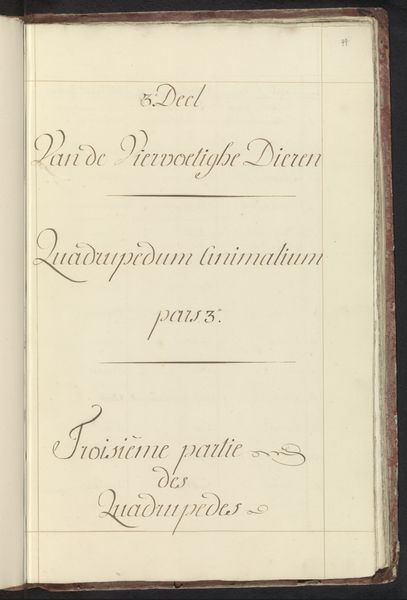 99
3.Deel
Van de Viervoetighe Dieren
Quadrupedum Animalium
pars 3.
Troisiéme partie
des
Quadrupedes